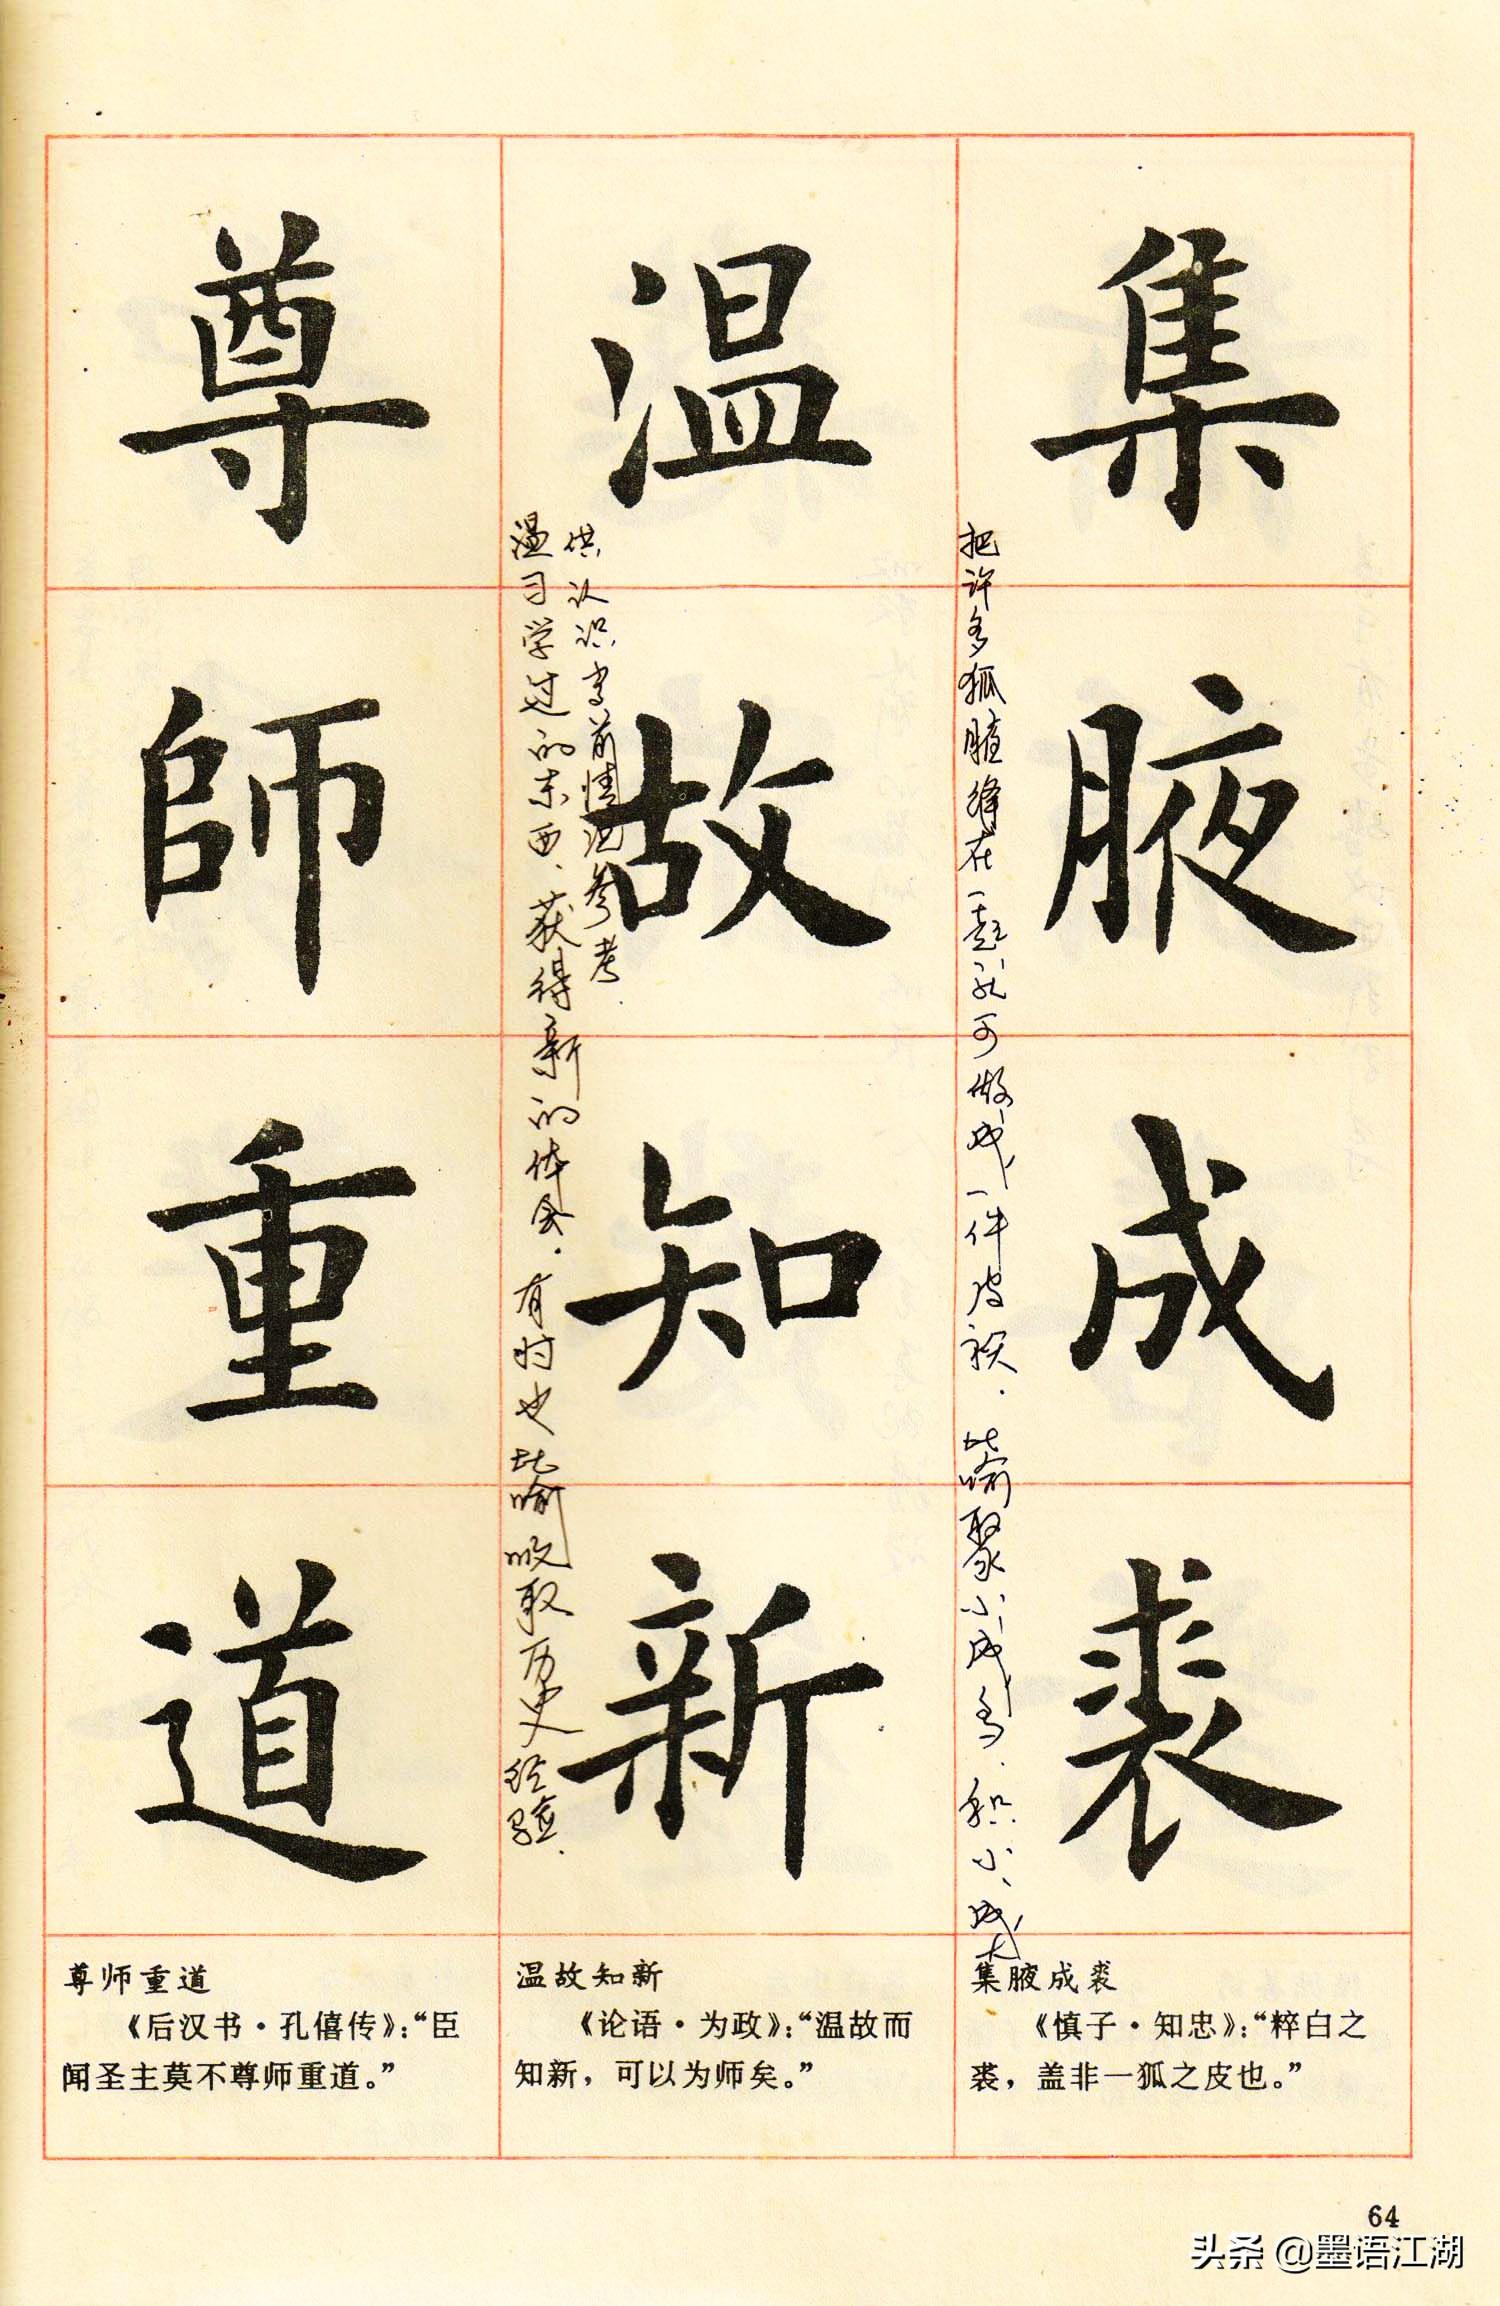 集腋成裘
把许多狐缝在一起就可做成一件皮袄．比喻聚小成多．积小成大
温故知新
温习学过的东西、获得新的体会．有时也比喻吸取历史经验．
供认识当前情况参考
尊師重道
集腋成裘
《慎子·知忠》：“粹白之
裘，盖非一狐之皮也。”
温故知新
《论语·为政》：“温故而
知新，可以为师矣。”
尊师重道
《后汉书·孔僖传》：“臣
闻圣主莫不尊师重道。”
64
头条 @墨语江湖